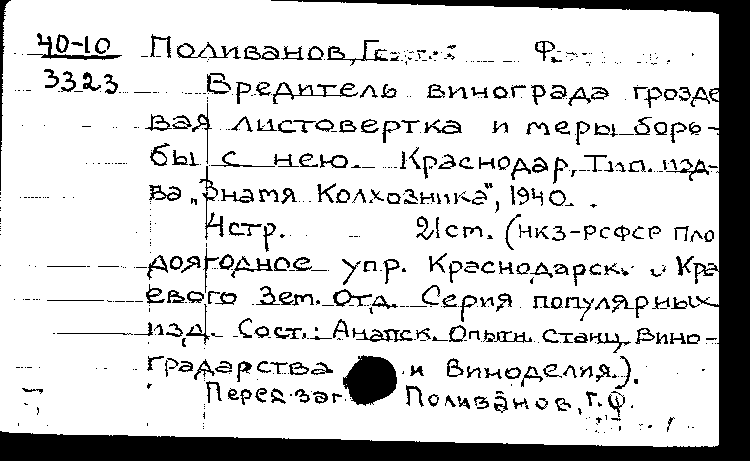 40-10 Поливанов, Георгий Ф
3323 Вредитель винограда грозде
вая листовертка и меры борь-
бы с нею. Краснодар, Тип. изд-
ва „Знамя Колхозника", 1940.
4стр. 21см. (НКЗ-РСФСР Пло
доягодное упр. Краснодарск. Кра
евого Зем. Отд. Серия популярных
изд. Сост.: Анапск. Опытн. Станц. Вино-
градарства и Виноделия.).
Перед заг. Поливанов, Г.Ф.